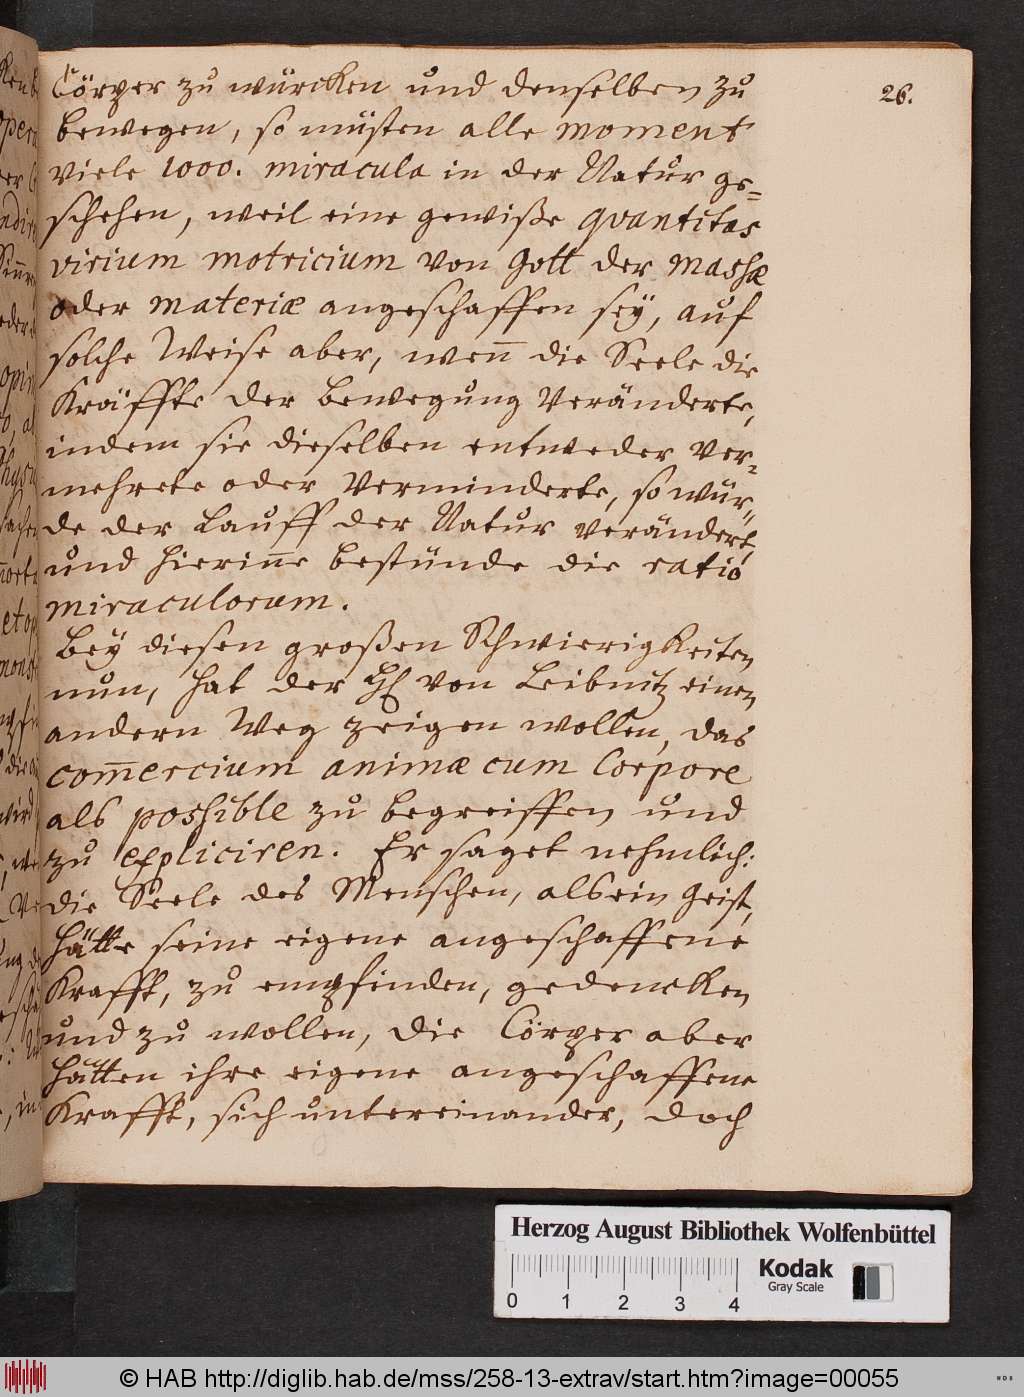 26.
Cörper zu würcken und denselben zu
bewegen, so müsten alle moment
viele 1000. miracula in der Natur ge=
schehen, weil eine gewiße qvantitas
virium motricium von Gott der massæ
oder materiæ angeschaffen seÿ, auf
solche Weise aber, weñ die Seele die
Kräffte der Bewegung veränderte,
indem sie dieselben entweder ver=
mehrete oder verminderte, so wür=
de der Lauff der Natur verändert,
und hieriñe bestünde die ratio
miraculorum.
Beÿ diesen großen Schwierigkeiten
nun, hat der H. von Leibnitz einen
andern Weg zeigen wollen, das
com̄ercium animæ cum Corpore
als possible zu begreiffen und
zu expliciren. Er saget nehmlich:
die Seele des Menschen, als ein Geist,
hätte seine eigene angeschaffene
Krafft, zu empfinden, gedencken
und zu wollen, die Cörper aber
hätten ihre eigene angeschaffene
Krafft, sich untereinander, doch
Herzog August Bibliothek Wolfenbüttel
Kodak
Gray Scale
0 1 2 3 4
© HAB http://diglib.hab.de/mss/258-13-extrav/start.htm?image=00055